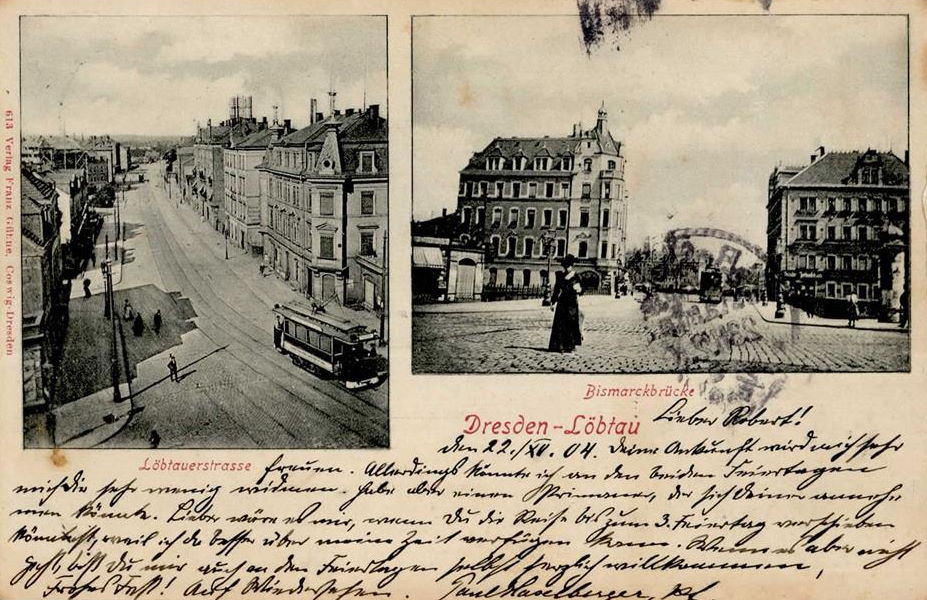 613 Verlag Franz Güttne, Coswig-Dresden
Bismarckbrücke
Dresden-Löbtau
Löbtauerstrasse
Lieber Robert!
den 22./XII. 04. Deine Ankunft wird mich sehr
freuen. Allerdings könnte ich an den beiden Feiertagen
mich Dir sehr wenig widmen. Habe aber einen Primaner, der sich Deiner anneh-
men könnte. Lieber wäre es mir, wenn Du die Reise bis zum 3. Feiertag verschieben
könntest, weil ich da besser über meine Zeit verfügen kann. Wenn es aber nicht
geht, bist Du mir auch an den Feiertagen selbst herzlich willkommen,
Frohes Fest! Auf Wiedersehen. Paul Haselberger,